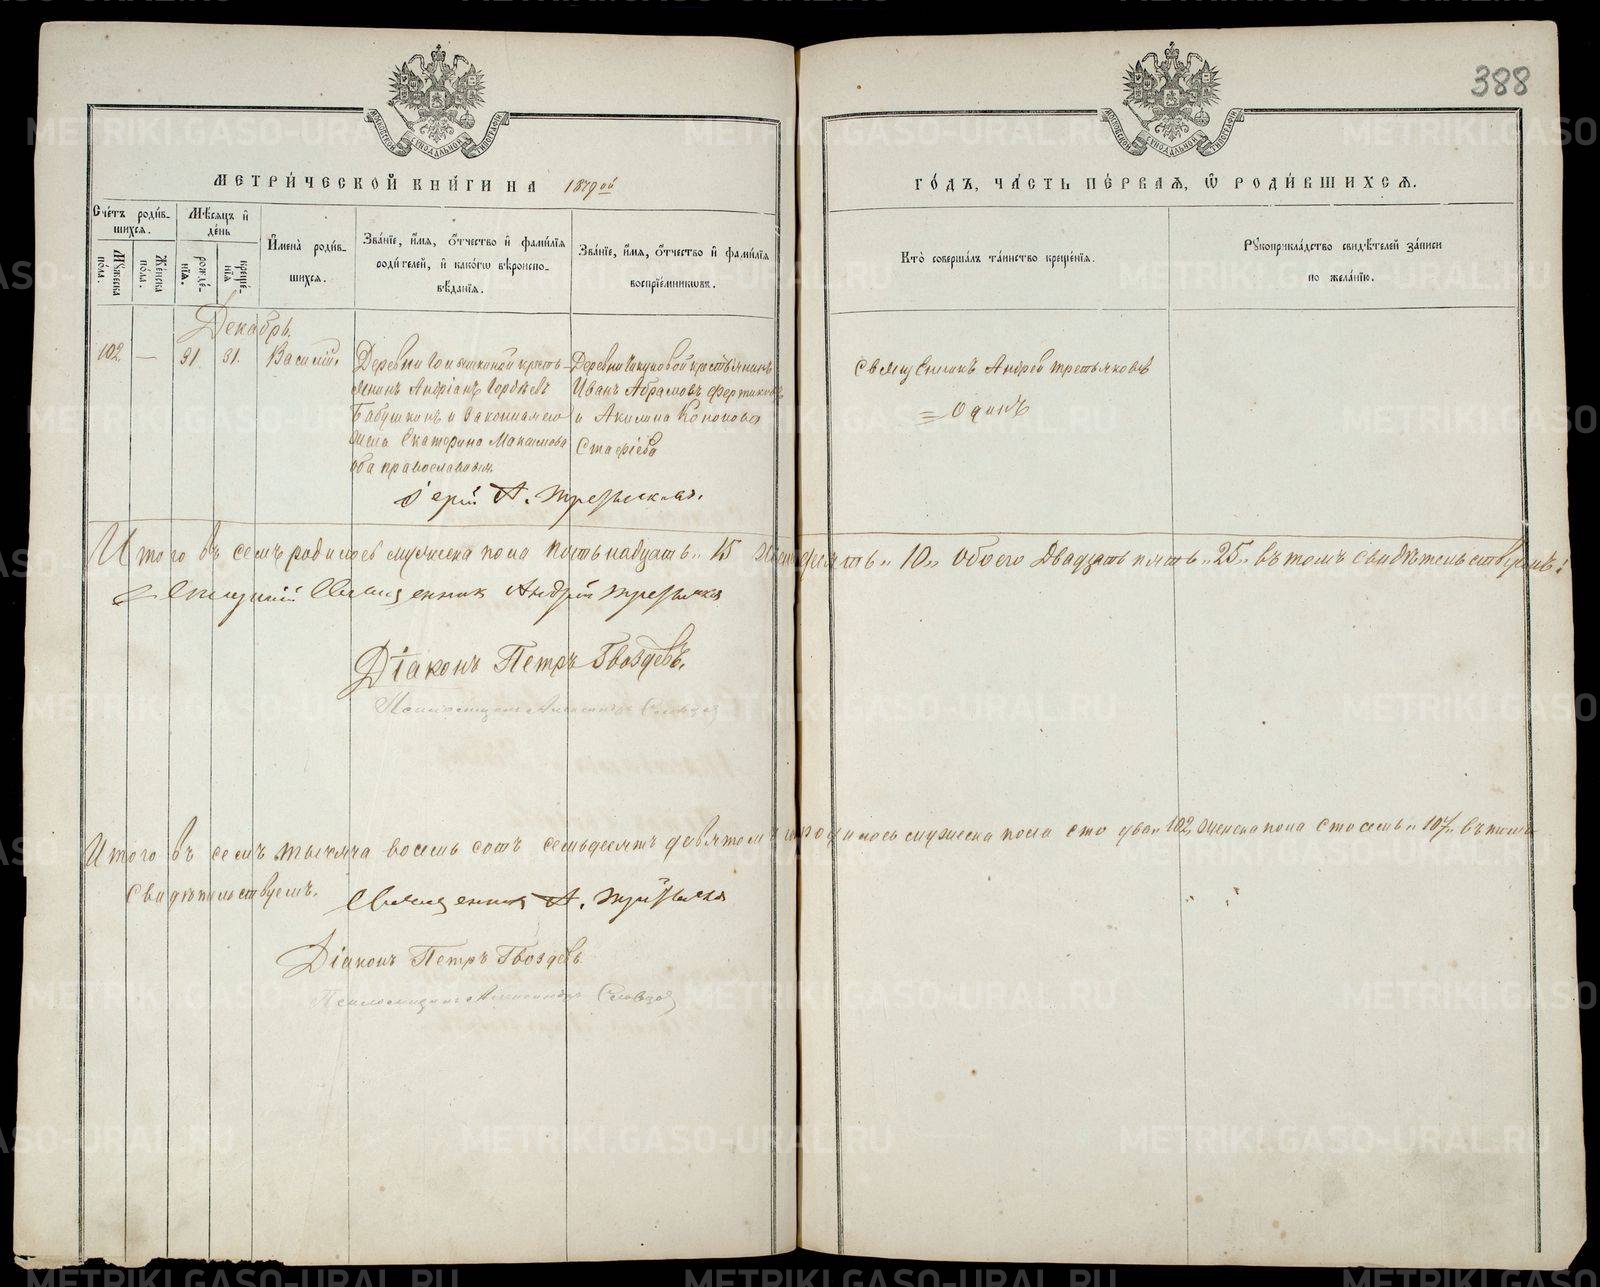 388
МОСКОВСКОЙ СИНОДАЛЬНОЙ ТИПОГРАФІИ
МОСКОВСКОЙ СИНОДАЛЬНОЙ ТИПОГРАФІИ
МЕТРИ́ЧЕСКОЙ КНИ́ГИ НА 1879ой
ГО́ДЪ, ЧА́СТЬ ПЕ́РВАЯ, Ѿ РОДИ́ВШИХСЯ.
Сче́тъ роди́в-
шихся.
Мѣ́сяцъ и҆
де́нь
Мꙋжеска
по́ла.
Же́нска
по́ла.
рожде́-
нїѧ.
креще́-
нїѧ
И҆мена̀ роди́в-
шихся.
Зва́нїе, и҆́мя, ѻ҆́тчество и҆ фами́лїя
роди́телей, и҆ како́гѡ вѣроиспо-
вѣ́данїя.
Зва́нїе, и҆́мя, ѻ҆́тчество и҆ фами́лїя
воспрїе́мниковъ.
Кто̀ соверша́лъ та́инство креще́нїя.
Рꙋкоприкла́дство свидѣ́телей за́писи
по жела́нїю.
Декабрь.
102 — 31. 31. Василій
Деревни кресть-
янинъ Андріанъ Гордѣевъ
Бабушкинъ и законная его
жена Екатерина Максимова
оба православныя.
Деревни крестьянинъ
Иванъ Абрамовъ
и Акилина Кононова
Священникъ Андрей Третьяковъ
= Одинъ
Іерей А. Третьяковъ.
Итого въ семъ родилось мужеска пола пятьнадцать „ 15 десять „ 10 „ обоего Двадцать пять „ 25 „ въ томъ свидѣтельствуемъ:
Священникъ Андрей Третьяковъ
Діаконъ Петръ Гвоздевъ.
Псаломщикъ Александръ
Итого въ семъ тысяча восемь сотъ семьдесятъ девятомъ родилось мужеска пола сто два „ 102, женска пола сто семь „ 107 „ въ томъ
свидѣтельствуемъ. Священникъ А. Третьяковъ
Діаконъ Петръ Гвоздевъ
Псаломщикъ Александръ
METRIKI.GASO-URAL.RU